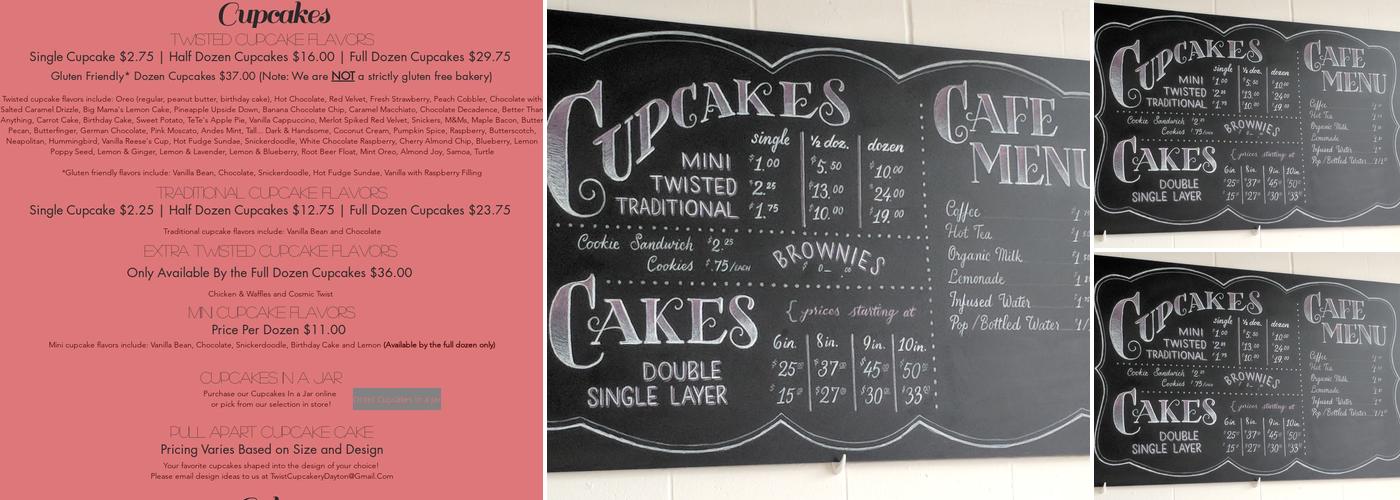 Cupcakes
TWISTED CUPCAKE FLAVORS
Single Cupcake $2.75 | Half Dozen Cupcakes $16.00 | Full Dozen Cupcakes $29.75
Gluten Friendly* Dozen Cupcakes $37.00 (Note: We are NOT a strictly gluten free bakery)
Twisted cupcake flavors include: Oreo (regular, peanut butter, birthday cake), Hot Chocolate, Red Velvet, Fresh Strawberry, Peach Cobbler, Chocolate with
Salted Caramel Drizzle, Big Mama's Lemon Cake, Pineapple Upside Down, Banana Chocolate Chip, Caramel Macchiato, Chocolate Decadence, Better Than
Anything, Carrot Cake, Birthday Cake, Sweet Potato, TeTe's Apple Pie, Vanilla Cappuccino, Merlot Spiked Red Velvet, Snickers, M&Ms, Maple Bacon, Butter
Pecan, Butterfinger, German Chocolate, Pink Moscato, Andes Mint, Tall... Dark & Handsome, Coconut Cream, Pumpkin Spice, Raspberry, Butterscotch,
Neapolitan, Hummingbird, Vanilla Reese's Cup, Hot Fudge Sundae, Snickerdoodle, White Chocolate Raspberry, Cherry Almond Chip, Blueberry, Lemon
Poppy Seed, Lemon & Ginger, Lemon & Lavender, Lemon & Blueberry, Root Beer Float, Mint Oreo, Almond Joy, Samoa, Turtle
*Gluten friendly flavors include: Vanilla Bean, Chocolate, Snickerdoodle, Hot Fudge Sundae, Vanilla with Raspberry Filling
TRADITIONAL CUPCAKE FLAVORS
Single Cupcake $2.25 | Half Dozen Cupcakes $12.75 | Full Dozen Cupcakes $23.75
Traditional cupcake flavors include: Vanilla Bean and Chocolate
EXTRA TWISTED CUPCAKE FLAVORS
Only Available By the Full Dozen Cupcakes $36.00
Chicken & Waffles and Cosmic Twist
MINI CUPCAKE FLAVORS
Price Per Dozen $11.00
Mini cupcake flavors include: Vanilla Bean, Chocolate, Snickerdoodle, Birthday Cake and Lemon (Available by the full dozen only)
CUPCAKES IN A JAR
Purchase our Cupcakes In a Jar online
or pick from our selection in store!
Order Cupcakes in a Jar
PULL APART CUPCAKE CAKE
Pricing Varies Based on Size and Design
Your favorite cupcakes shaped into the design of your choice!
Please email design ideas to us at TwistCupcakeryDayton@Gmail.Com
CUPCAKES
single ½ doz. dozen
MINI $1.00 $5.50 $10.00
TWISTED $2.25 $13.00 $24.00
TRADITIONAL $1.75 $10.00 $19.00
Cookie Sandwich $2.25
Cookies $.75/EACH
BROWNIES
CAKES
{prices starting at
6in. 8in. 9in. 10in.
DOUBLE $25 $37 $45 $50
SINGLE LAYER $15 $27 $30 $33
CAFE
MENU
Coffee
Hot Tea
Organic Milk
Lemonade
Infused Water
Pop/Bottled Water
CUPCAKES
single ½ doz. dozen
MINI $1.00 $5.50 $10.00
TWISTED $2.25 $13.00 $24.00
TRADITIONAL $1.75 $10.00 $19.00
Cookie Sandwich $2.25
Cookies $.75/EACH
BROWNIES
CAKES
{prices starting at
6in. 8in. 9in. 10in.
DOUBLE $25 $37 $45 $50
SINGLE LAYER $15 $27 $30 $33
CAFE
MENU
Coffee
Hot Tea
Organic Milk
Lemonade
Infused Water
Pop/Bottled Water
CUPCAKES
single ½ doz. dozen
MINI $1.00 $5.50 $10.00
TWISTED $2.25 $13.00 $24.00
TRADITIONAL $1.75 $10.00 $19.00
Cookie Sandwich $2.25
Cookies $.75/EACH
BROWNIES
CAKES
{prices starting at
6in. 8in. 9in. 10in.
DOUBLE $25 $37 $45 $50
SINGLE LAYER $15 $27 $30 $33
CAFE
MENU
Coffee
Hot Tea
Organic Milk
Lemonade
Infused Water
Pop/Bottled Water